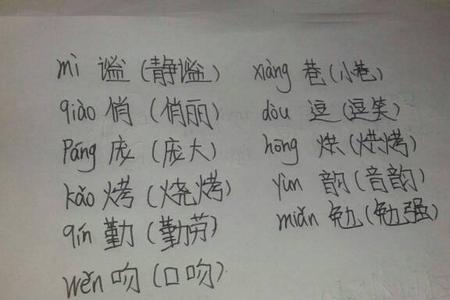 mì 谧 (静谧)
qiào 俏 (俏丽)
Páng 庞 (庞大)
kǎo 烤 (烧烤)
qín 勤 (勤劳)
wěn 吻 (口吻)
xiàng 巷 (小巷)
dòu 逗 (逗笑)
hōng 烘 (烘烤)
yùn 韵 (音韵)
miǎn 勉 (勉强)